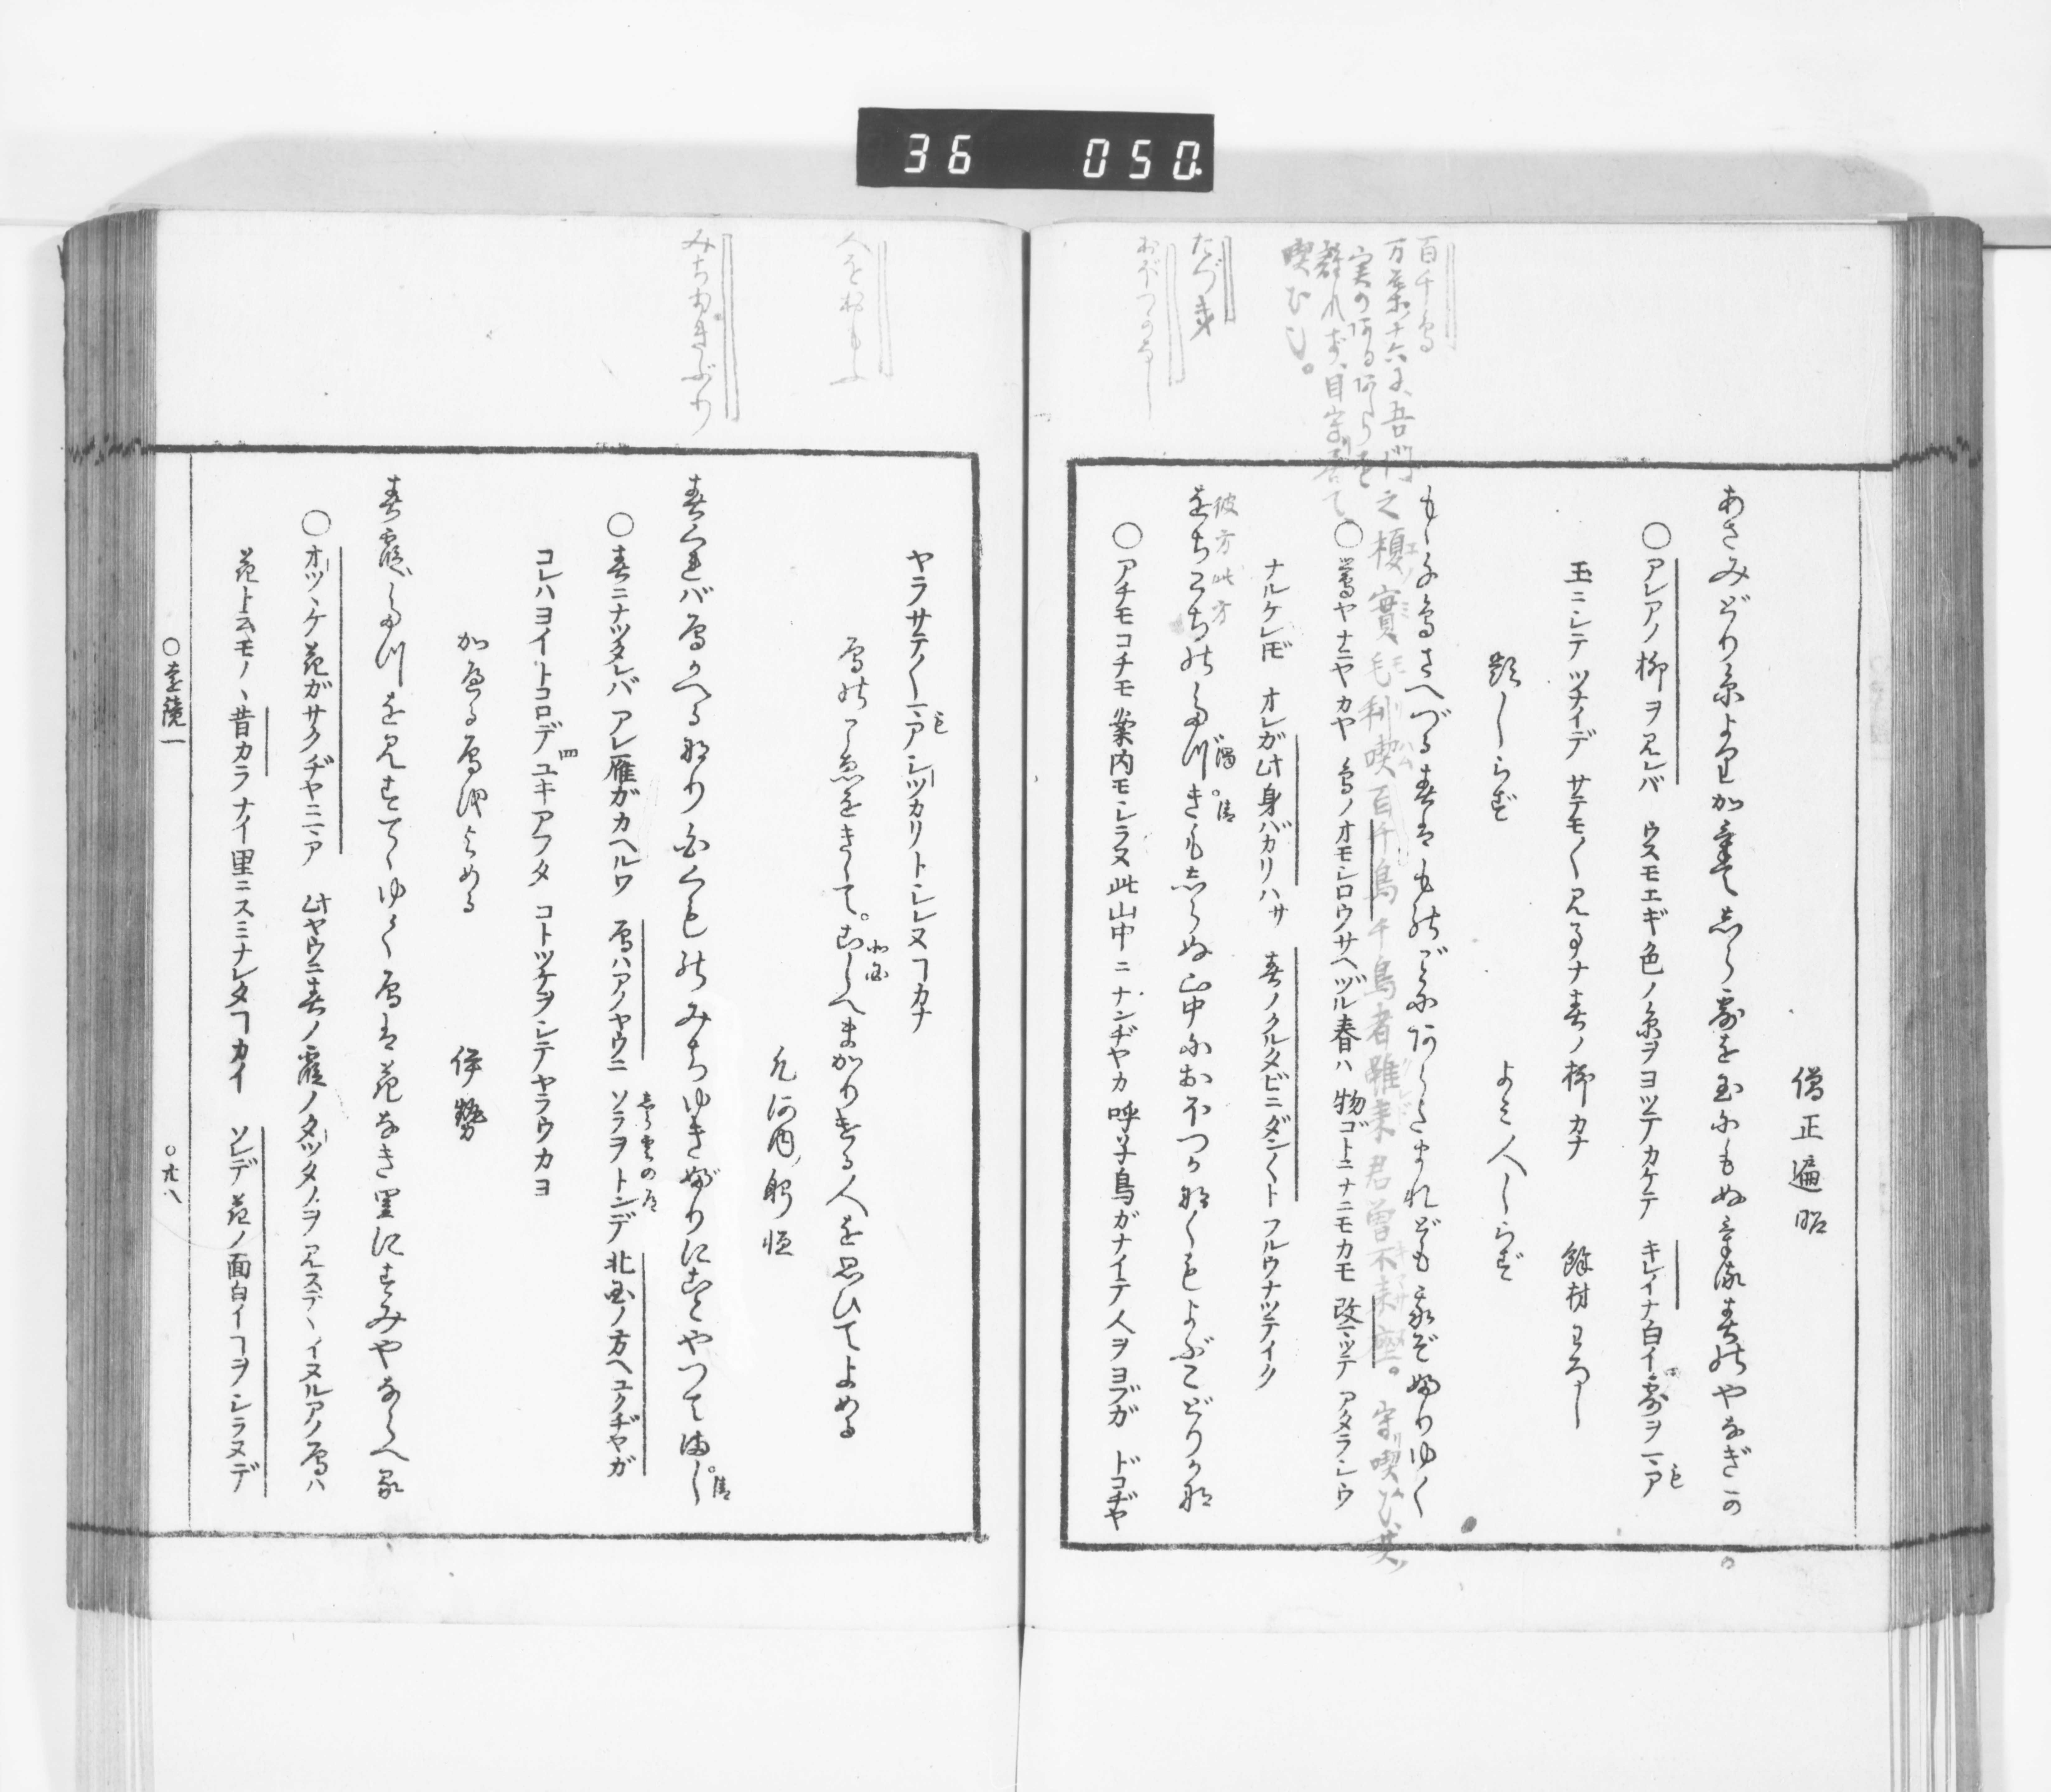 36 050
百千鳥
万葉十六に、吾門之榎實毛利喫百千鳥千鳥者雖来君曽不来座。守リ喫ひ、其
実のあるあひらを
離れず、目守リ居て、
喫むむ。
たづき
おぼつかなし
僧正遍昭
あさみどり糸よりかけてしら露を玉にもぬける春のやなぎか
○アレアノ柳ヲ見レバ ウスモエギ色ノ糸ヲヨツテカケテ キレイナ白イ露ヲマア
玉ニシテ ツナイデ サテモ〱見事ナ春ノ柳カナ 餘材わろし
題しらず よみ人しらず
もゝちどりさへづる春はものごとにあらたまれどもわれぞふりゆく
○鶯ヤナニヤカヤ 鳥ノオモシロウサヘヅル春ハ 物ゴトニナニモカモ 改マツテ アタラシウ
ナルケレドモ オレガ此身バカリハサ 春ノクルタビニダン〱ト フルウナツテイク
彼方此方
をちこちのたづきもしらぬ山中におぼつかなくもよぶこどりかな
濁 清
○アチモコチモ 案内モシラヌ此山中ニ ナンヂヤカ 呼子鳥ガナイテ人ヲヨブガ ドコヂヤ
人をおもふ
みちゆきぶり
ヤラサテ〱マアシツカリトシレヌコカナ
雁のこゑをきゝて。こしへまかりける人を思ひてよめる
凡河内躬恒
春くればかりかへるなり白くものみちゆきぶりにことやつてまし
清
○春ニナツタレバ アレ雁ガカヘルワ 雁ハアノヤウニ ソラヲトンデ 北国ノ方ヘユクヂヤガ
コレハヨイトコロデ ユキアフタ コトツテヲシテヤラウカヨ
帰る雁をよめる 伊勢
春霞たつを見すてゝゆく雁は花なき里にすみやならへる
○オツヽケ花ガサクヂヤニマア 此ヤウニ春ノ霞ノタツタノヲ 見ステヽイヌルアノ雁ハ
花ト云モノヽ昔カラナイ里ニスミナレタコカイ ソレデ花ノ面白イコヲシラヌデ
○遠鏡一 ○廿八